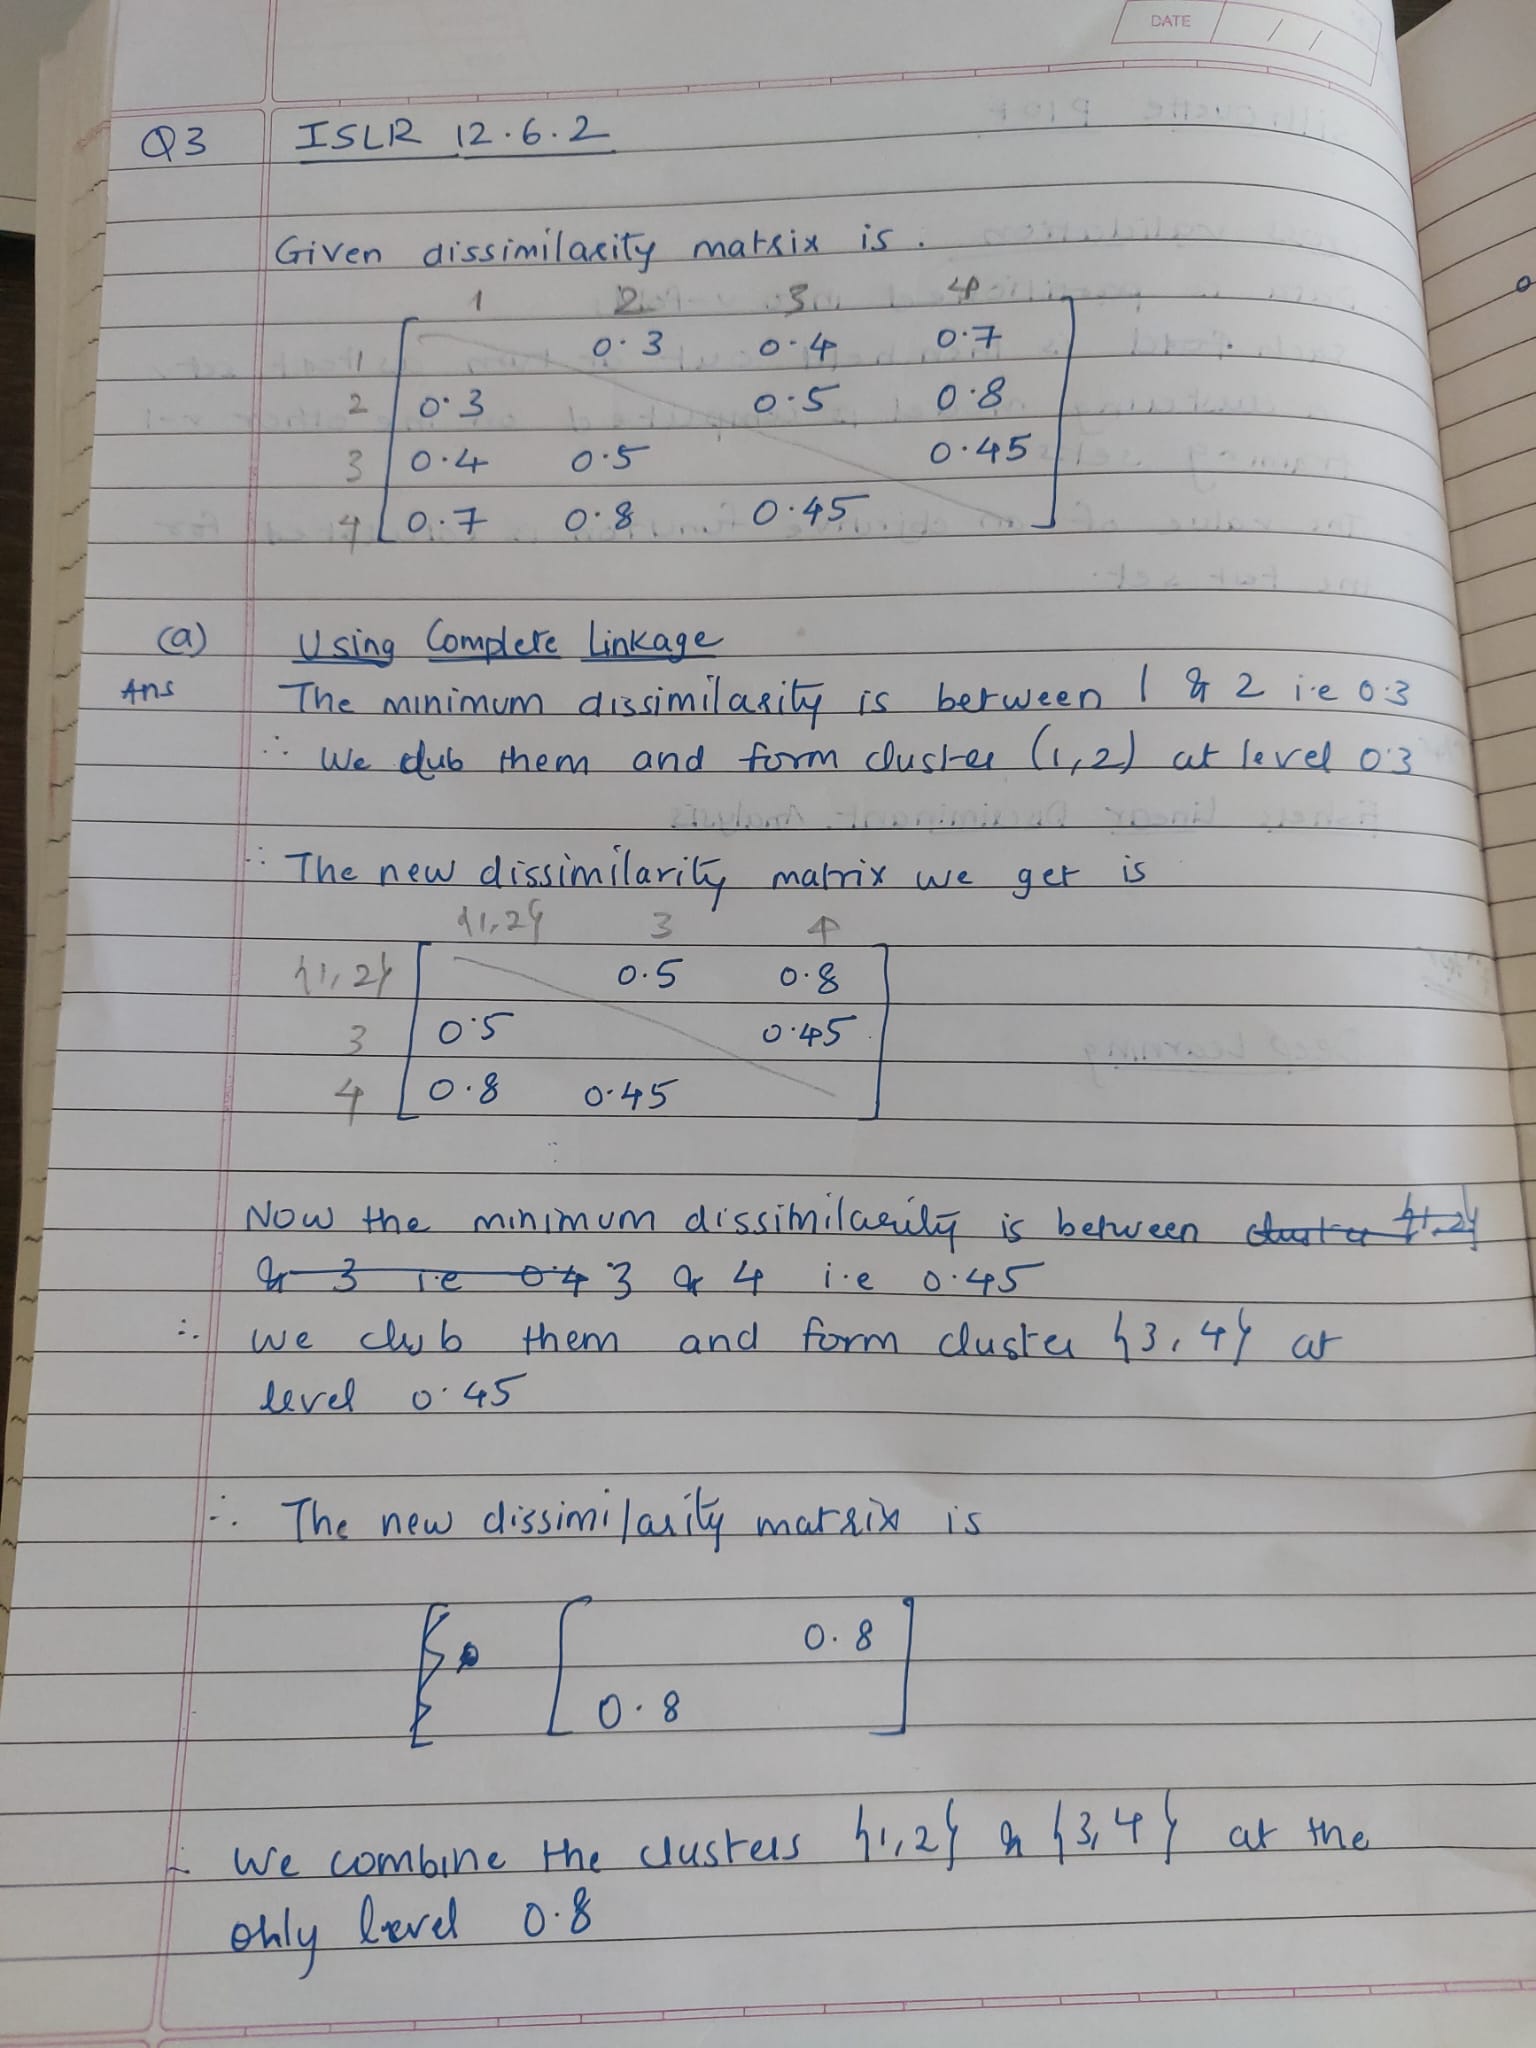 DATE / /
Q3 ISLR 12.6.2
Given dissimilarity matrix is.
1 2 3 4
1 0.3 0.4 0.7
2 0.3 0.5 0.8
3 0.4 0.5 0.45
4 0.7 0.8 0.45
(a) Using Complete Linkage
Ans The minimum dissimilarity is between 1 & 2 i.e 0.3
∴ We club them and form cluster (1,2) at level 0.3
∴ The new dissimilarity matrix we get is
{1,2} 3 4
{1,2} 0.5 0.8
3 0.5 0.45
4 0.8 0.45
Now the minimum dissimilarity is between cluster {1,2}
& 3 i.e 0.4 3 & 4 i.e 0.45
∴ we club them and form cluster {3,4} at
level 0.45
∴ The new dissimilarity matrix is
0.8
0.8
∴ We combine the clusters {1,2} & {3,4} at the
only level 0.8